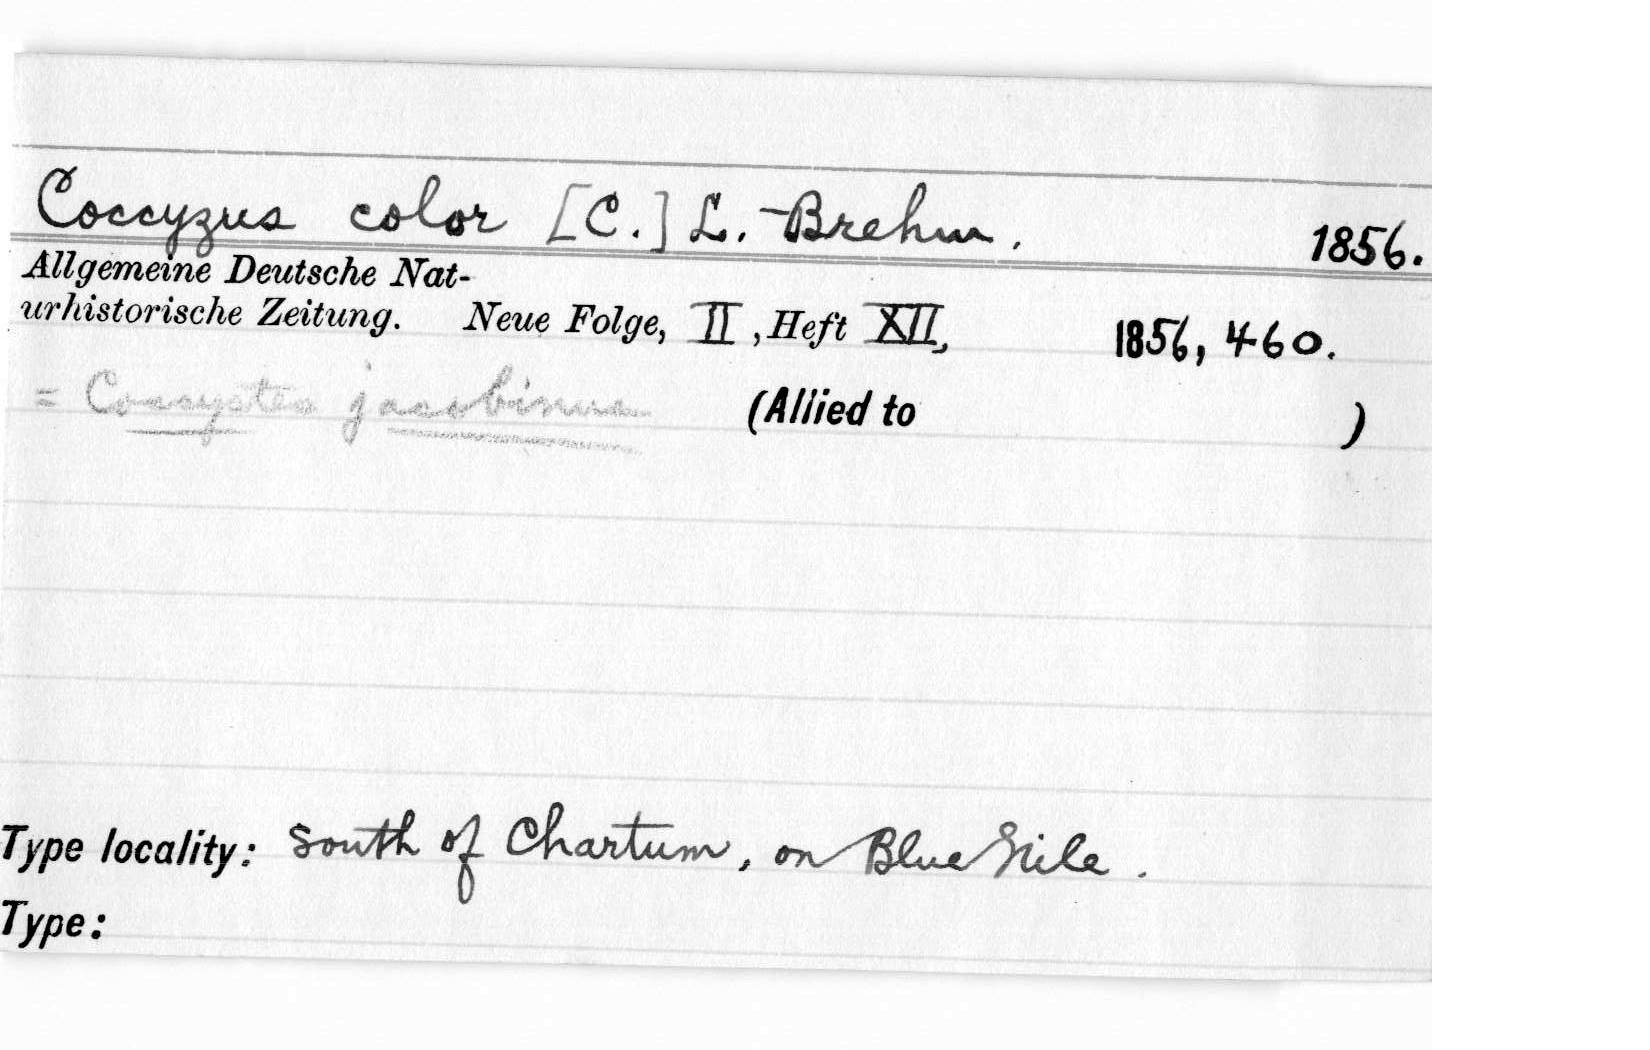 Coccyzus color [C.] L. Brehm. 1856.
Allgemeine Deutsche Nat-
urhistorische Zeitung. Neue Folge, II, Heft XII, 1856, 460.
= Coccystes jacobinus (Allied to )
Type locality: South of Chartum, on Blue Nile.
Type: